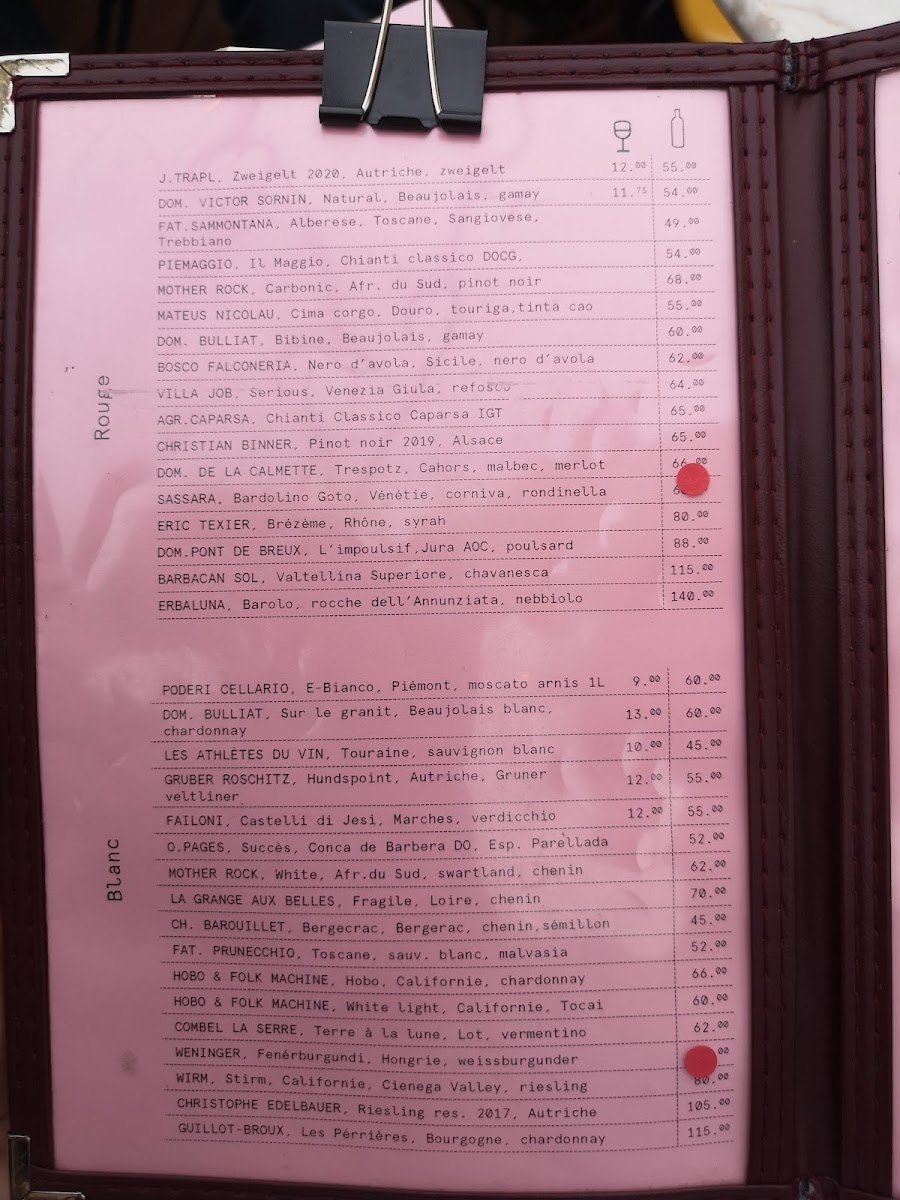 J.TRAPL, Zweigelt 2020, Autriche, zweigelt 12.00 55.00
DOM. VICTOR SORNIN, Natural, Beaujolais, gamay 11.75 54.00
FAT.SAMMONTANA, Alberese, Toscane, Sangiovese, 49.00
Trebbiano
PIEMAGGIO, Il Maggio, Chianti classico DOCG, 54.00
MOTHER ROCK, Carbonic, Afr. du Sud, pinot noir 68.00
MATEUS NICOLAU, Cima corgo, Douro, touriga,tinta cao 55.00
DOM. BULLIAT, Bibine, Beaujolais, gamay 60.00
BOSCO FALCONERIA, Nero d'avola, Sicile, nero d'avola 62.00
VILLA JOB, Serious, Venezia Giula, refosco 64.00
AGR.CAPARSA, Chianti Classico Caparsa IGT 65.00
Rouge
CHRISTIAN BINNER, Pinot noir 2019, Alsace 65.00
DOM. DE LA CALMETTE, Trespotz, Cahors, malbec, merlot 66.00
SASSARA, Bardolino Goto, Vénétie, corniva, rondinella
ERIC TEXIER, Brézème, Rhône, syrah 80.00
DOM.PONT DE BREUX, L'impoulsif,Jura AOC, poulsard 88.00
BARBACAN SOL, Valtellina Superiore, chavanesca 115.00
ERBALUNA, Barolo, rocche dell'Annunziata, nebbiolo 140.00
PODERI CELLARIO, E-Bianco, Piémont, moscato arnis 1L 9.00 60.00
DOM. BULLIAT, Sur le granit, Beaujolais blanc, 13.00 60.00
chardonnay
LES ATHLÈTES DU VIN, Touraine, sauvignon blanc 10.00 45.00
GRUBER ROSCHITZ, Hundspoint, Autriche, Gruner 12.00 55.00
veltliner
FAILONI, Castelli di Jesi, Marches, verdicchio 12.00 55.00
O.PAGES, Succès, Conca de Barbera DO, Esp. Parellada 52.00
Blanc
MOTHER ROCK, White, Afr.du Sud, swartland, chenin 62.00
LA GRANGE AUX BELLES, Fragile, Loire, chenin 70.00
CH. BAROUILLET, Bergecrac, Bergerac, chenin,sémillon 45.00
FAT. PRUNECCHIO, Toscane, sauv. blanc, malvasia 52.00
HOBO & FOLK MACHINE, Hobo, Californie, chardonnay 66.00
HOBO & FOLK MACHINE, White light, Californie, Tocai 60.00
COMBEL LA SERRE, Terre à la lune, Lot, vermentino 62.00
WENINGER, Fenérburgundi, Hongrie, weissburgunder
WIRM, Stirm, Californie, Cienega Valley, riesling 80.00
CHRISTOPHE EDELBAUER, Riesling res. 2017, Autriche 105.00
GUILLOT-BROUX, Les Pérrières, Bourgogne, chardonnay 115.00